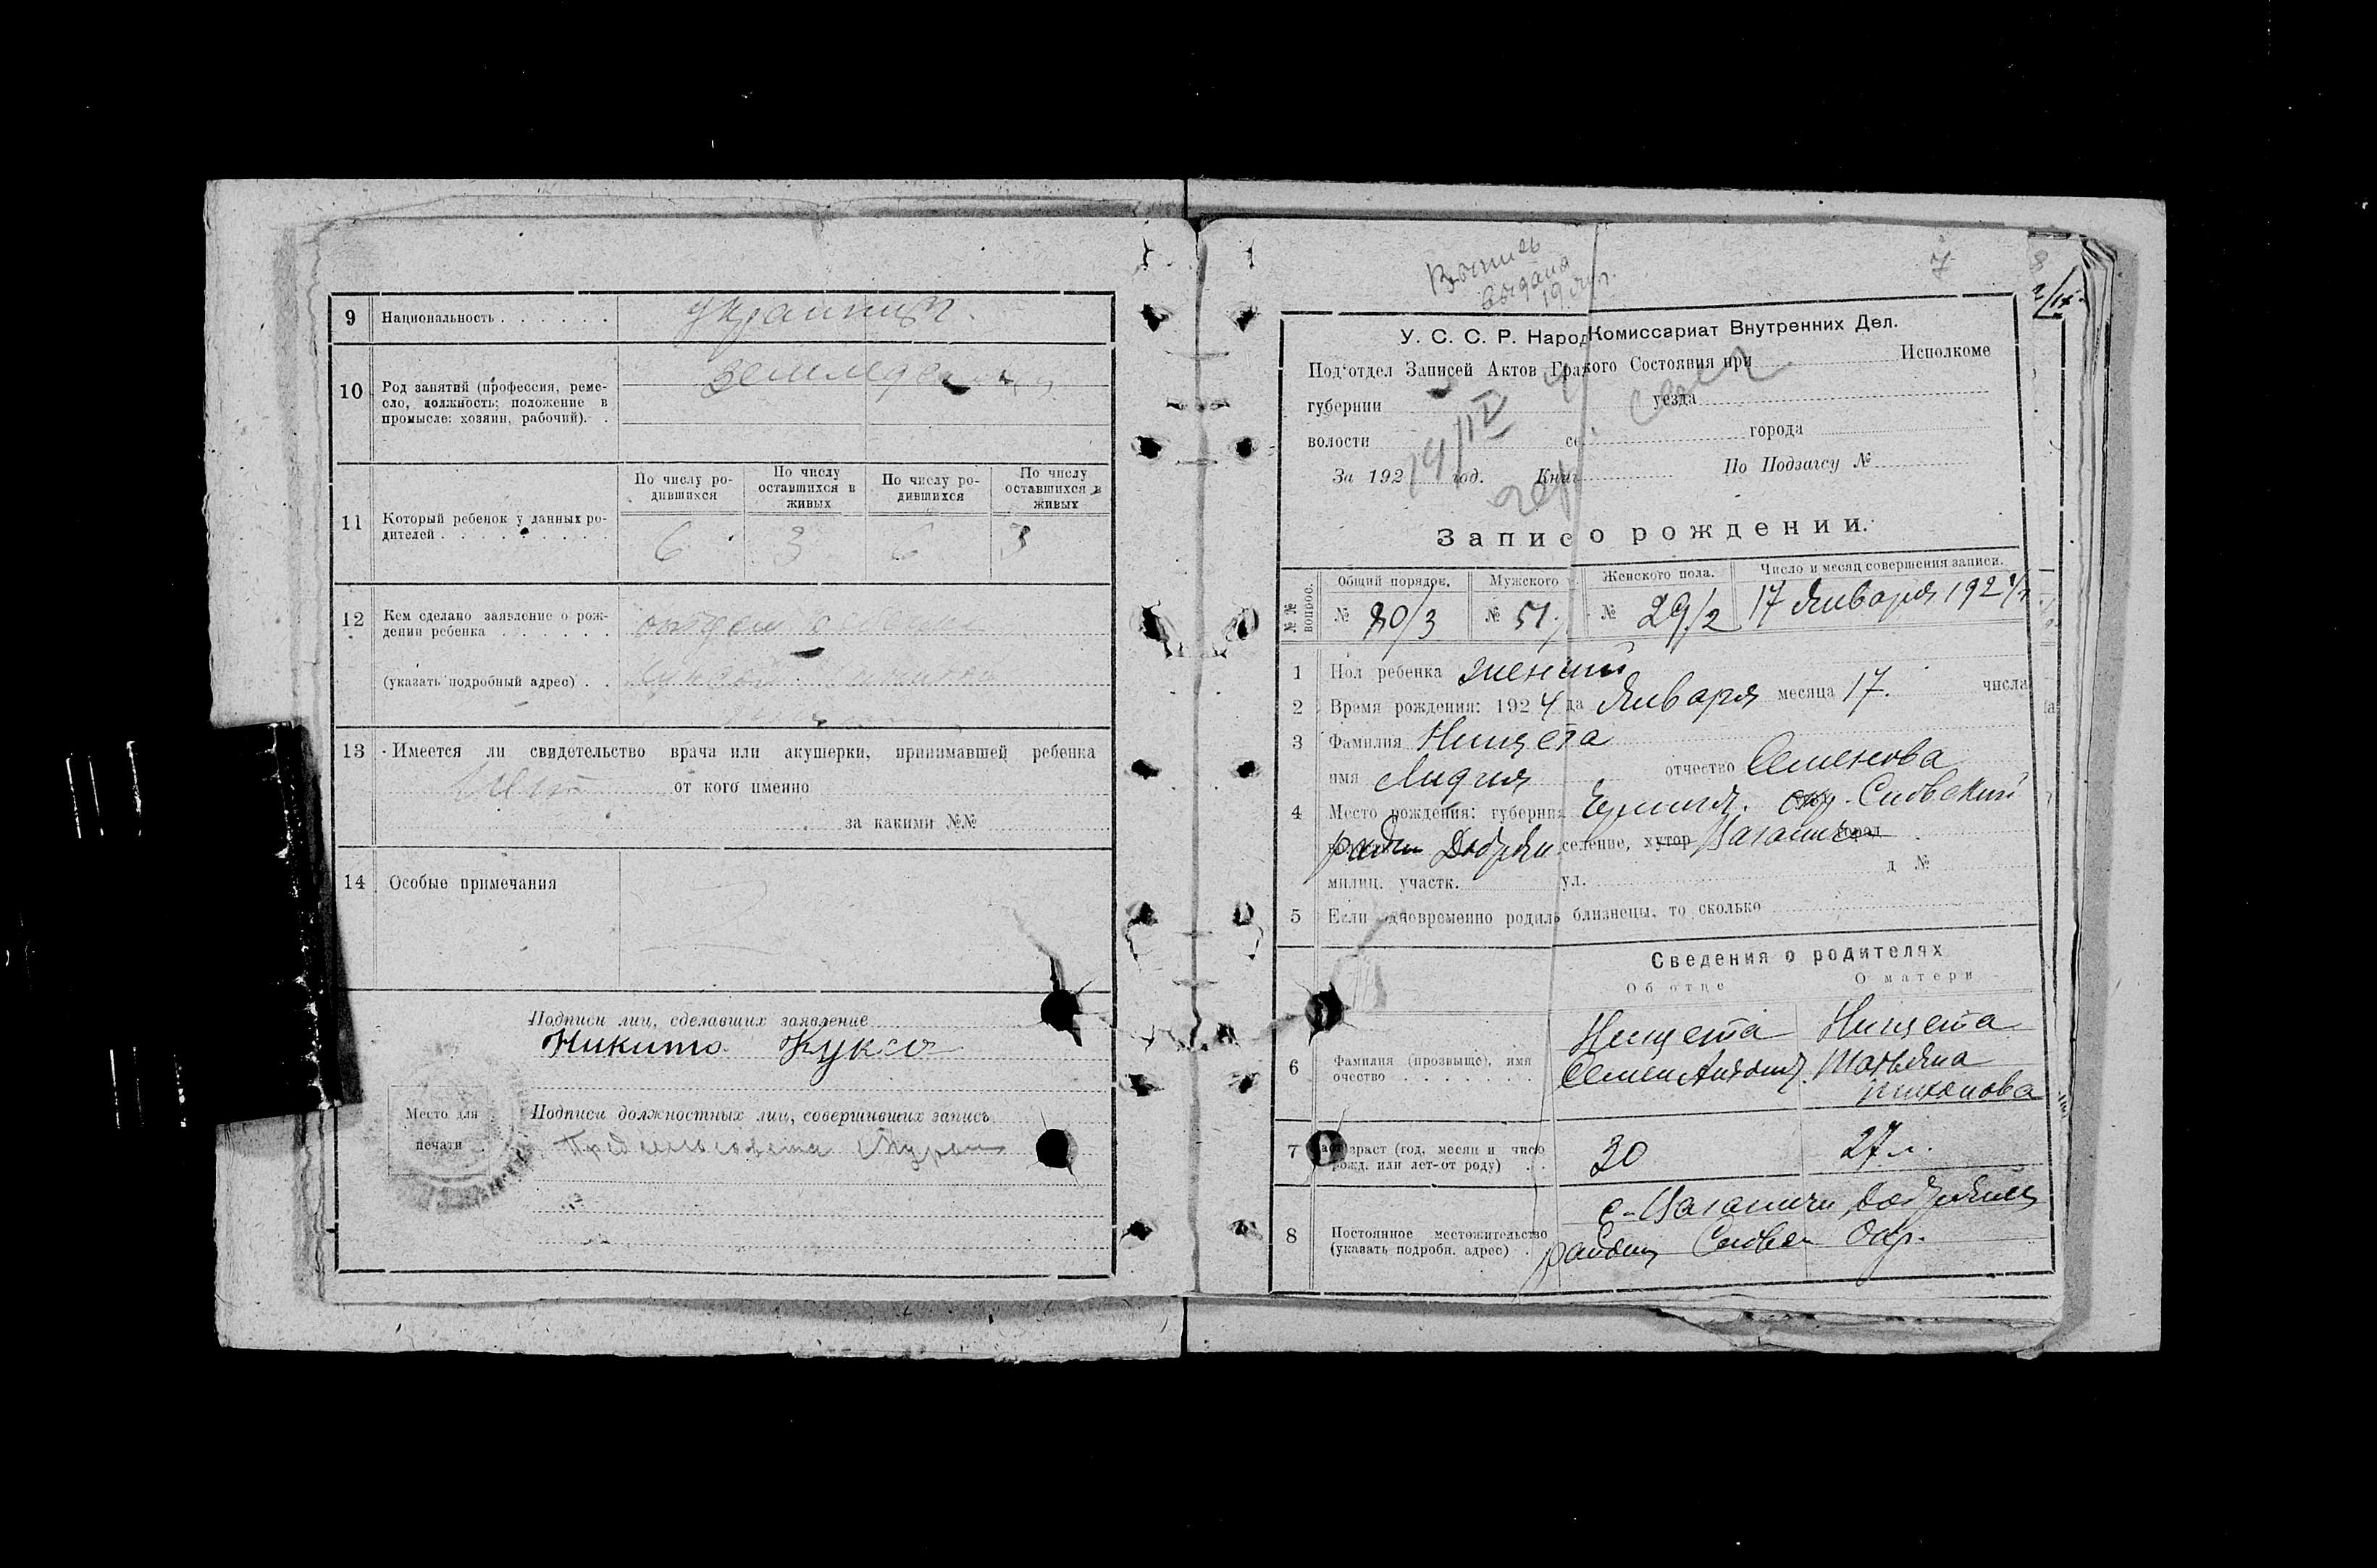 9 Национальность . . . . . . украинцы.
10 Род занятий (профессия, реме-
сло, должность; положение в
промысле: хозяин, рабочий). .
земледел
11 Который ребенок у данных ро-
дителей . . . . . . . . .
По числу ро-
дившихся
По числу
оставшихся в
живых
По числу ро-
дившихся
По числу
оставшихся в
живых
6 3 6 3
12 Кем сделано заявление о рож-
дении ребенка . . . . . .
(указать подробный адрес) . .
13 Имеется ли свидетельство врача или акушерки, принимавшей ребенка
нет от кого именно
за какими №№
14 Особые примечания
Подписи лиц, сделавших заявление
Никита Куксо
Место для
печати
Подписи должностных лиц, совершивших запись
Предсельсовета
7
Выпись
выдана
У. С. С. Р. Народ Комиссариат Внутренних Дел.
Под'отдел Записей Актов Гра кого Состояния при Исполкоме
губернии уезда
волости се города
За 192 год. Книг По Подзагсу №
Запис о рождении.
№№ вопрос.
Общий порядок. Мужского п. Женского пола. Число и месяц совершения записи.
№ 80/3 № 51 № 29/2 17 Января 1924
1 Пол ребенка женский
2 Время рождения: 1924 да Января месяца 17. числа
3 Фамилия Нищета
имя Лидия отчество Семенова
4 Место рождения: губерния Черниг. окр. Сновский
район Добрян. селение, хутор город
милиц. участк. ул. д №
5 Если одновременно родил близнецы, то сколько
Сведения о родителях
Об отце О матери
6 Фамилия (прозвище), имя
очество . . . . . . .
Нищета Нищета
Семен Антон. Татьяна
Тихонова
7 Возраст (год, месяц и число
рожд. или лет-от роду) . .
30 27 л.
8 Постоянное местожительство
(указать подробн. адрес) .
с.
Сновск Окр.